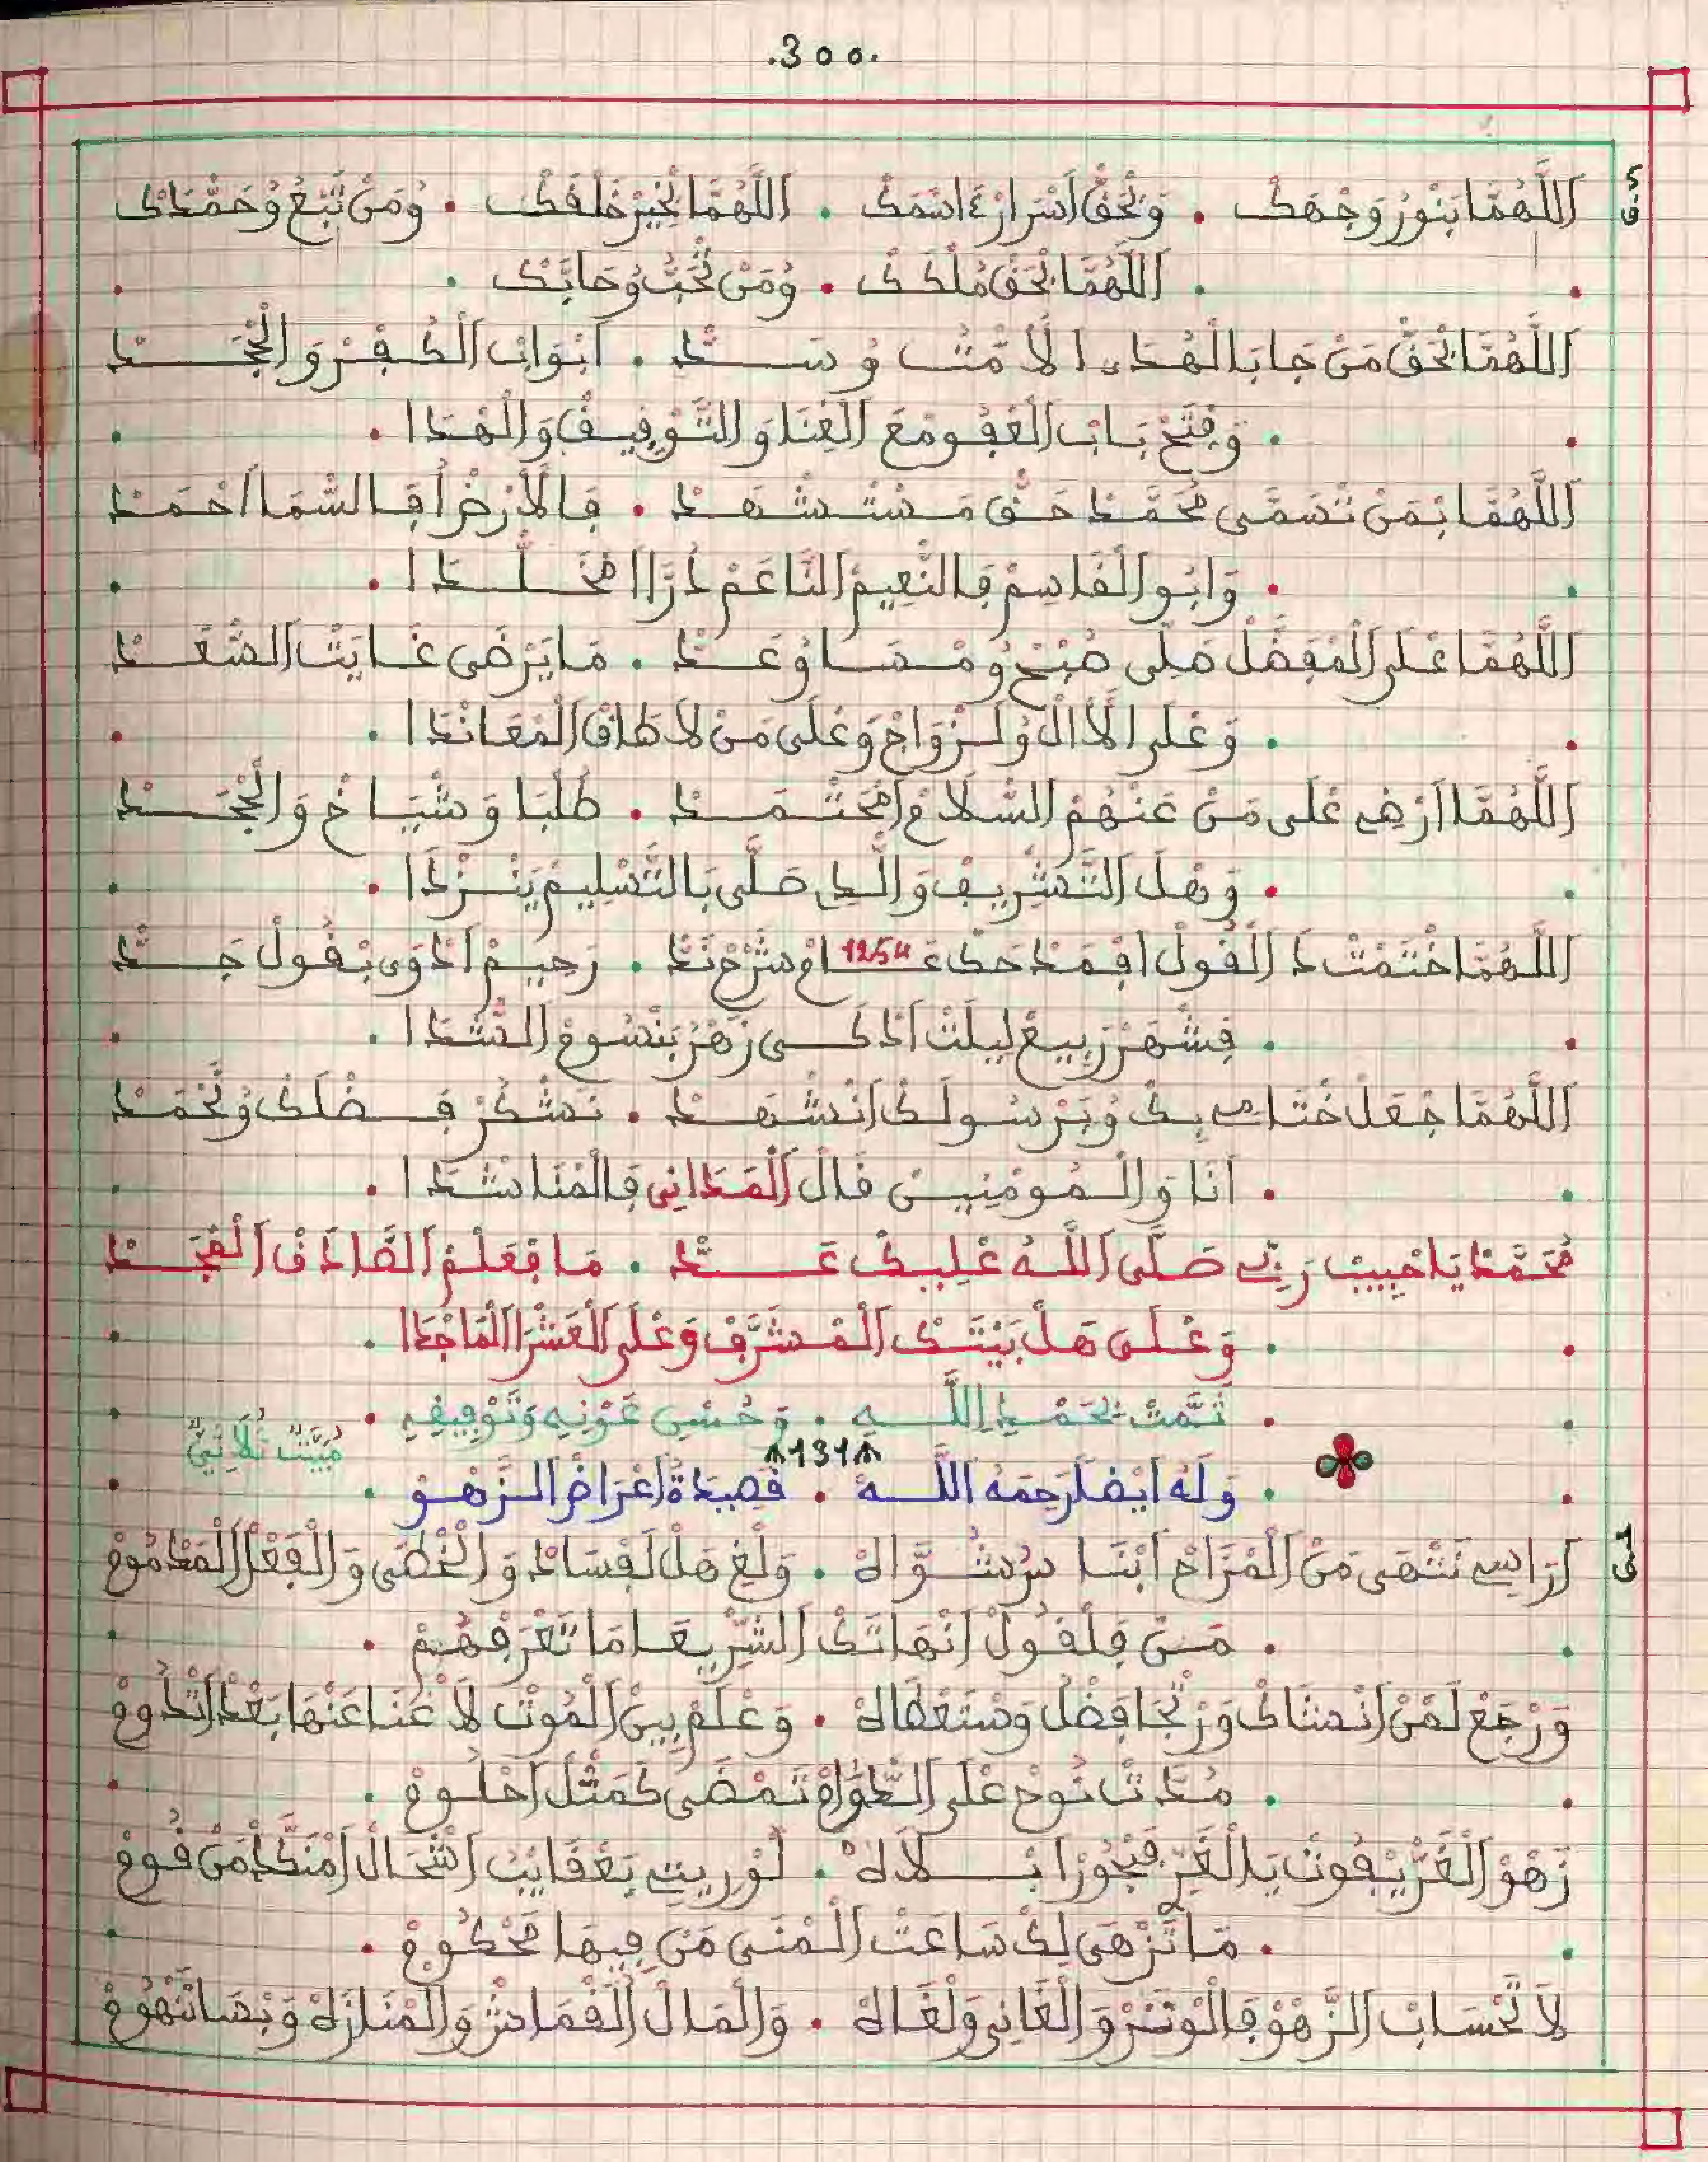 .300.
اَللَّهُمَّا بَنُورْ وَجْهَكْ . وَبْحَقّْ اَسْرَارْ ءَاسْمَكْ . اَللَّهُمَّا بْخِيرْ خَلْقَكْ . وُمَنْ تَبْعُ وُحَمّْدَكْ
. اَللَّهُمَّا بْحَقّْ مُلْكَكْ . وُمَنْ تْحَبُّ وُحَابَّكْ .
اَللَّهُمَّا بْحَقّْ مَنْ جَا بَالْهُدَى الْأَمّْتُ وُسَدّْ . اَبْوَابْ الْكُفْرْ وَالْجْحَدْ
. وَفْتَحْ بَابْ الْعَفُو مْعَ الْغْنَا وَالتَّوْفِيقْ وَالْهْدَا .
اَللَّهُمَّا بْمَنْ تْسَمَّى مُحَمَّدْ حَقّْ مَسْتَشْهَدْ . فَالْأَرْضْ اُفَالسّْمَا اَحْمَدْ
. وَابُو الْقَاسِمْ فَالنّْعِيمْ النَّاعَمْ دَرَّا مْخَلّْدَا .
اَللَّهُمَّا عْلَى الْمْفَضَّلْ صَلِّى صْبَحْ وُمْسَا وُعَدّْ . مَا يَرْضَى غَايَتْ السّْعَدْ
. وَعْلَى الْأَالْ وُلَزْوَاجْ وَعْلَى مَنْ لَا طَاقْ الْمْعَانْدَا .
اَللَّهُمَّا اَرْضِي عْلَى مَنْ عَنْهُمْ السّْلَامْ اَمْحَتّْمَدْ . طُلْبَا وَشْيَاخْ وَالْجْحَدْ
. وَهْلْ التَّشْرِيفْ وَالْدِي صَلَّى بَالتَّسْلِيمْ يَنْزْدَا .
اَللَّهُمَّا خْتَمْتْ دَا الْقُولْ اَفْمَدْحَكْ عَامْ 1254 شَرْحْ نَدّْ . رَحِيمْ اَدْوَى بْقُولْ جَدّْ
. فِشْهَرْ رَبِيعْ لِيلَتْ اَدْكَى زَهْرْ بَنْسُومْ الشّْدَا .
اَللَّهُمَّا جْعَلْ خْتَامِي بِكْ وُبَرْسُولَكْ اَنْشْهَدْ . نَشْكُرْ فَضْلَكْ وُنْحَمْدْ
. اَنَا وَالْمُومْنِينْ قَالْ الْمَدَانِي فَالْمْنَاشْدَا .
مُحَمَّدْ يَا حْبِيبْ رَبِّي صَلَّى اَللَّهُ عْلِيكْ عَدّْ . مَا فْعَلْمْ الصَّادَقْ الْفْجَدْ
. وَعْلَى هَلْ بَيْتَكْ الْمْشَرّْفْ وَعْلَى الْعَشْرَا الْمَاجْدَا .
. تَمَّتْ بِحَمْدِ اللَّهِ . وَحُسْنِ عَوْنِهِ وَتَوْفِيقِهِ .
مُبَيَّتٌ ثُلَاثِيٌّ
131
. وَلَهُ اَيْضًا رَحِمَهُ اَللَّهُ . قَصِيدَةُ اَعْرَاضْ الزّْهُو .
اَرَاسِي نَتْهَى مَنْ الْمْزَاحْ اَبْنَا سْرْشُوَّالَهْ . وَلْغِ هَلْ لَفْسَادْ وَالْخْطَى وَالْفْعَلْ الْمَدْمُومْ
. مَنْ فِلْقُولْ اَنْهَاتَكْ الشّْرِيعَا مَا تَعْرَفْهُمْ .
وَرْجَعْ لَمَّنْ اَنْشَاكْ وَرْجَا فَضْلُ وَسْتَعْطَالَهْ . وَعْلَمْ بِينْ الْمُوتْ لَا غْنَا عَنْهَا بَعْدْ اَتْدُومْ
. مُدَّتْ نُوحْ عْلَى الدّْوَامْ تَمْضَى كَمْثَلْ اَحْلُومْ .
زَهْوْ الْغَرّْ يْفُوتْ يَا الْغَرّْ فَبْجُورَا بْلَالَهْ . لُو رِيتِ بَعْقَايْبُ اَشْحَالْ اَمْنَكّْدْ مَنْ قُومْ
. مَا تَزْهَى لِكْ سَاعَتْ الْمْنَى مَنْ فِيهَا مَحْكُومْ .
لَا تَحْسَابْ الزّْهُو فَالْوْتَرْ وَالْغَانِي وَلْغَالَهْ . وَالْمَالْ اَلْقْمَاشْ وَالْمْنَازَهْ وَبْصَاتْهُومْ